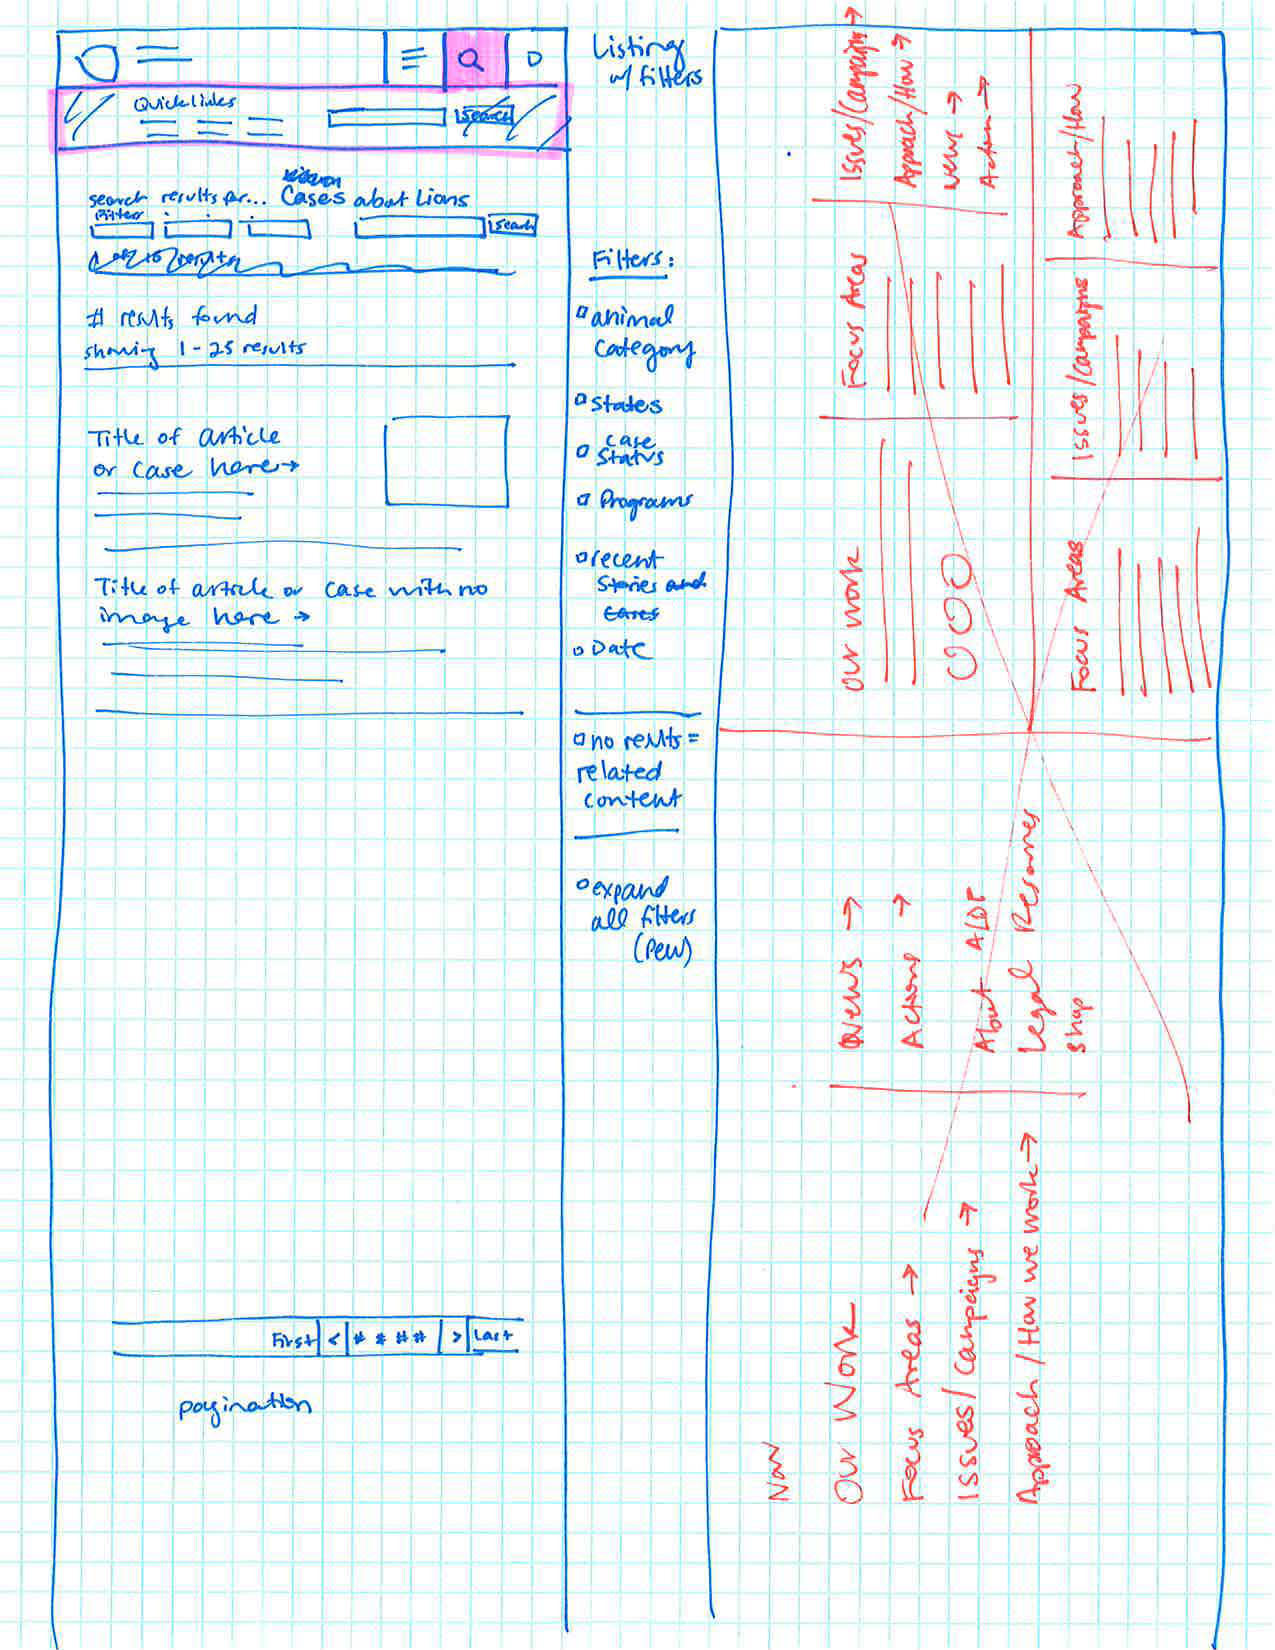 Listing
w/ filters
Quicklinks
Search
search results for... Cases about Lions
Filter
Search
# results found
showing 1-25 results
Title of article
or case here→
Title of article or case with no
image here →
First < # # # # > Last
pagination
Filters:
animal
category
States
case
Status
Programs
recent
Stories and
Cases
Date
no results =
related
content
expand
all filters
(Pew)
Nav
Our Work
Focus Areas →
Issues/Campaigns →
Approach/How we work→
News →
Actions →
About ALDF
Legal Resources
Shop
Our Work
Focus Areas
Issues/Campaigns→
Approach/How→
News →
Action→
Focus Areas
Issues/Campaigns
Approach/How